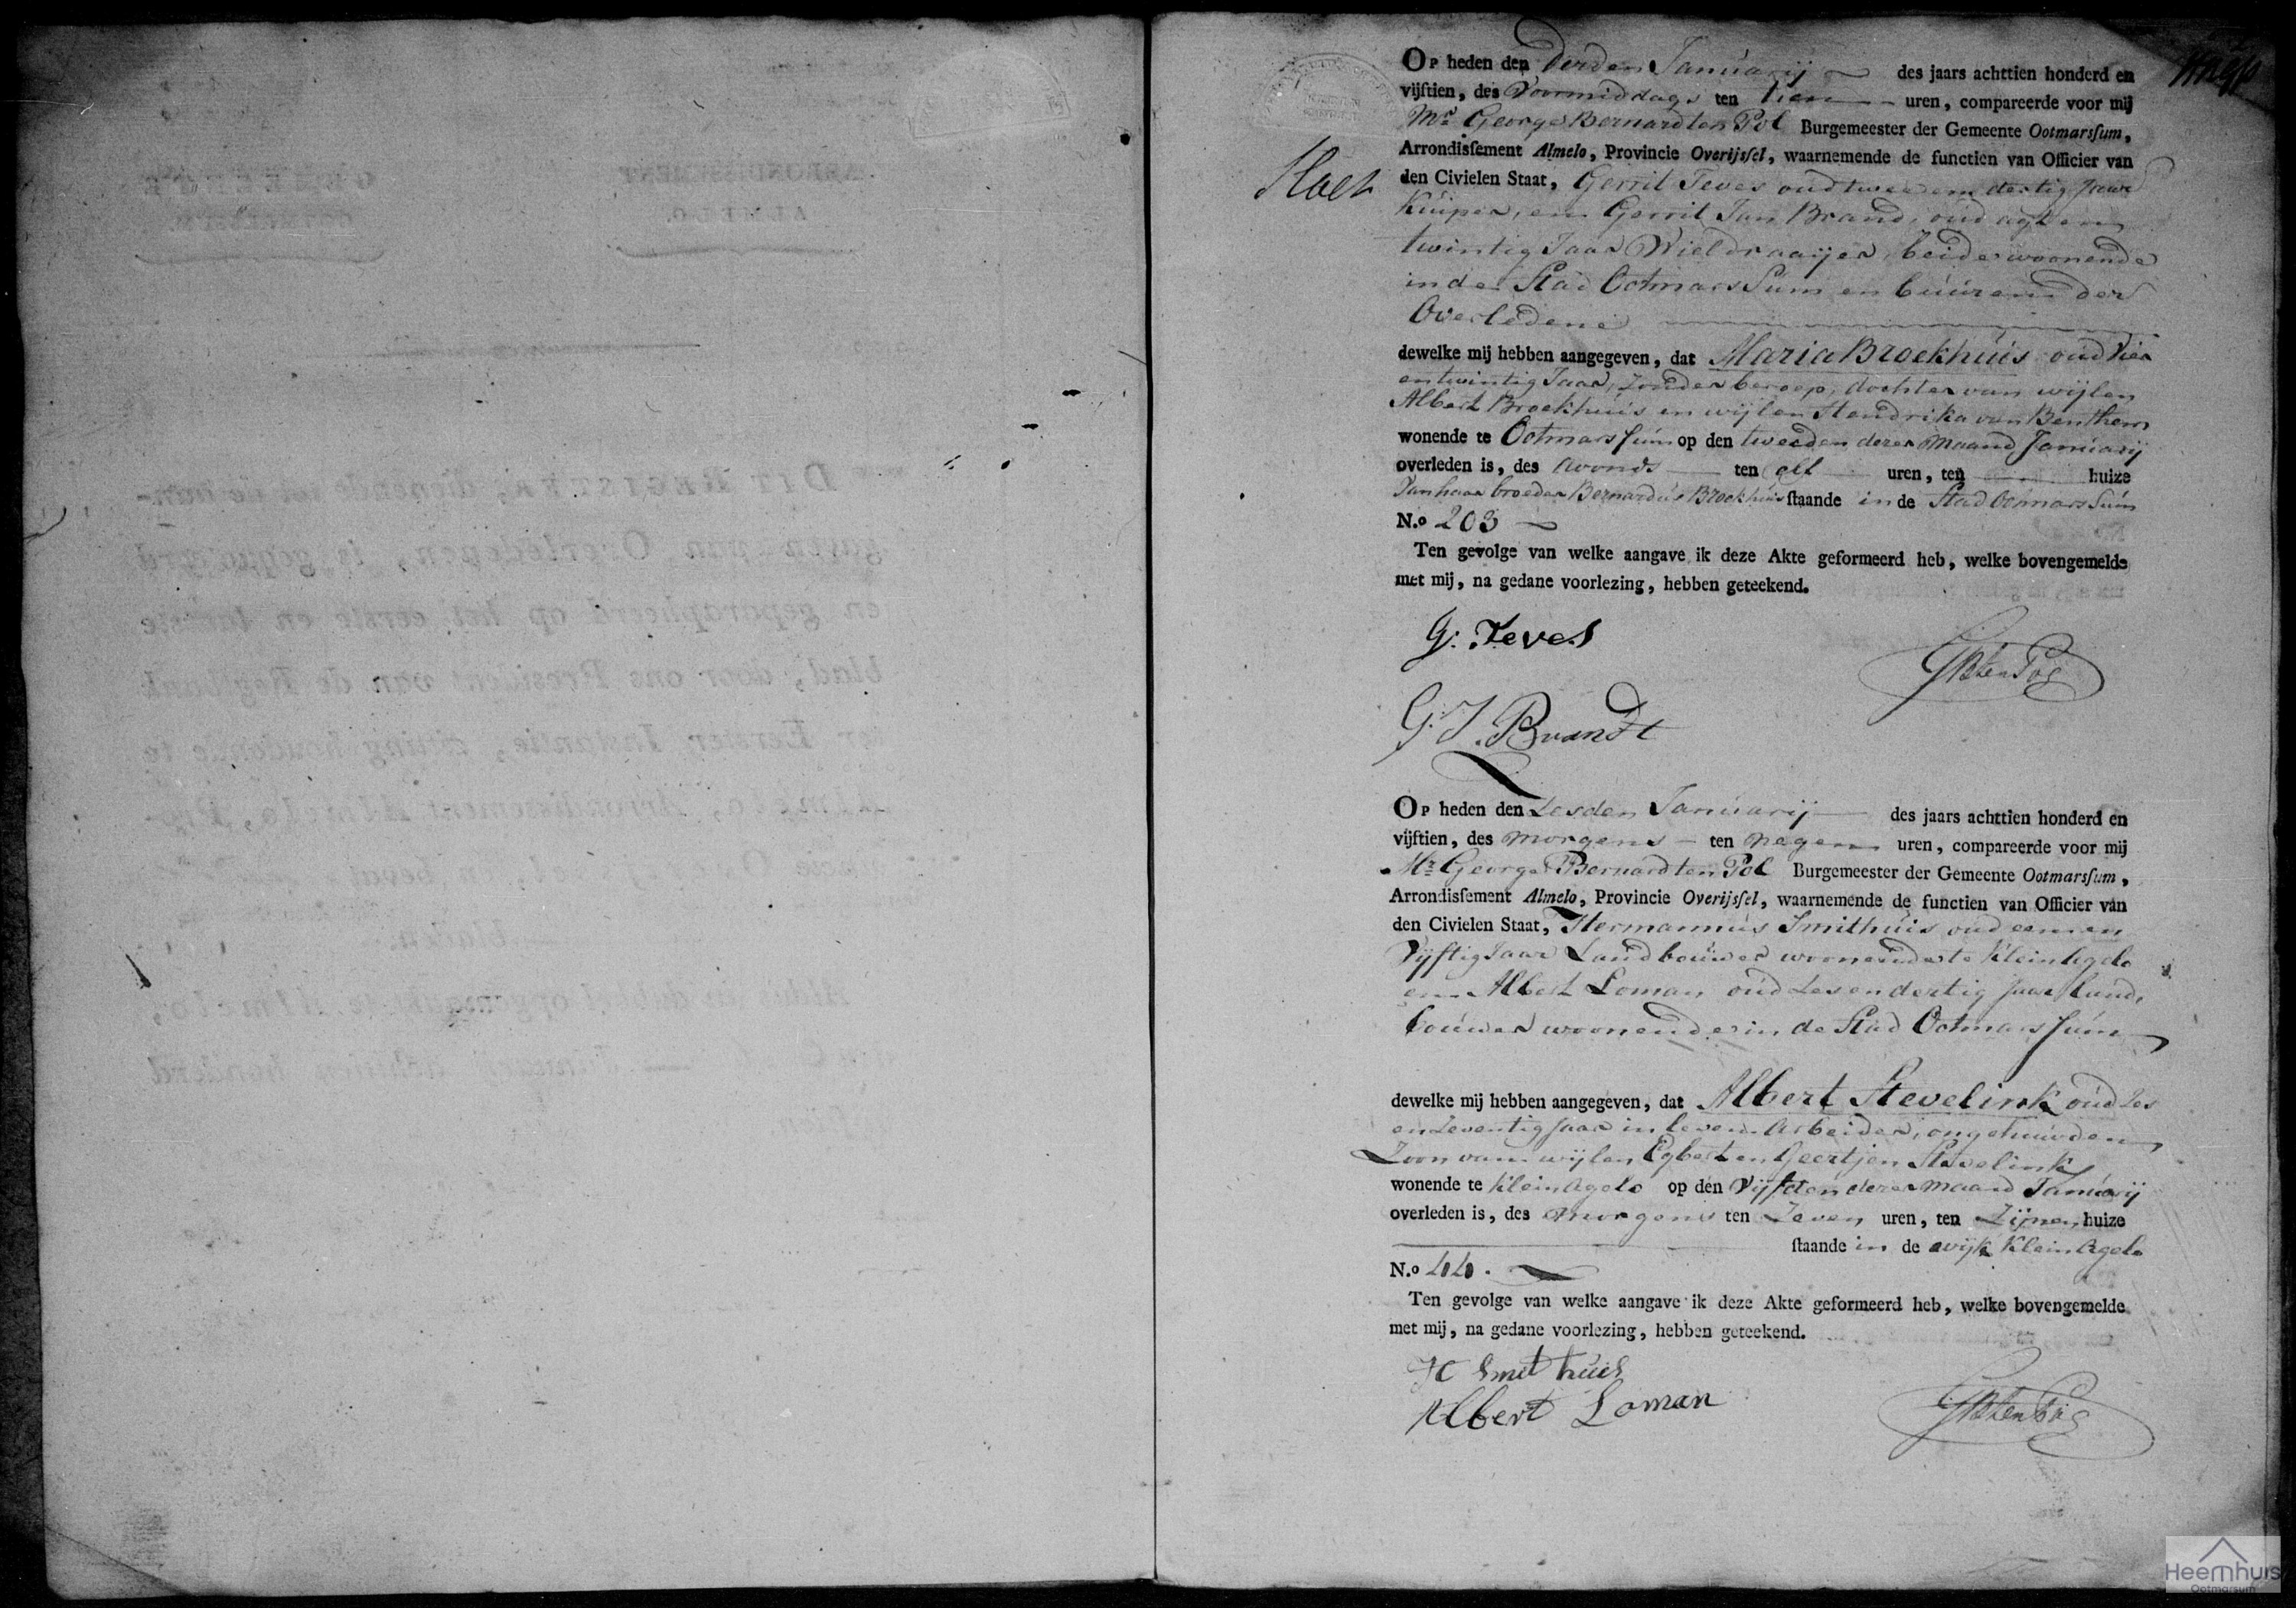 Op heden den derden Januarij des jaars achttien honderd en
vijftien, des Voormiddags ten tien uren, compareerde voor mij
Mr. George Bernard ten Pol Burgemeester der Gemeente Ootmarssum,
Arrondissement Almelo, Provincie Overijssel, waarnemende de functien van Officier van
den Civielen Staat, Gerrit Teves oud twee en dertig Jaar
Kuiper, en Gerrit Jan Brand, oud agt en
twintig Jaar Wieldraaijer, beide woonende
in de Stad Ootmarssum en buuren der
Overledene
dewelke mij hebben aangegeven, dat Maria Broekhuis oud vier
en twintig Jaar, zonder beroep, dochter van wijlen
Albert Broekhuis en wijlen Hendrika van Benthem
wonende te Ootmarssum op den tweeden dezer maand Januarij
overleden is, des avonds ten elf uren, ten huize
van haar broeder Bernardus Broekhuis staande in de Stad Ootmarssum
N.o 203
Ten gevolge van welke aangave ik deze Akte geformeerd heb, welke bovengemelde
met mij, na gedane voorlezing, hebben geteekend.
G. Teves
GBtenPol
G. J. Brandt
Op heden den zesden Januarij des jaars achttien honderd en
vijftien, des morgens ten negen uren, compareerde voor mij
Mr. George Bernard ten Pol Burgemeester der Gemeente Ootmarssum,
Arrondissement Almelo, Provincie Overijssel, waarnemende de functien van Officier van
den Civielen Staat, Hermannus Smithuis oud een en
Vijftig Jaar Landbouwer woonende te Klein Agelo
en Albert Loman oud zes en dertig Jaar Land,
bouwer woonende in de Stad Ootmarssum
dewelke mij hebben aangegeven, dat Albert Stevelink oud zes
en zeventig Jaar in leven Arbeider, ongehuwden
Zoon van wijlen Egbert en Geertjen Stevelink
wonende te Klein Agelo op den Vijfden dezer maand Januarij
overleden is, des morgens ten Zeven uren, ten Zijnen huize
staande in de wijk Klein Agelo
N.o 44.
Ten gevolge van welke aangave ik deze Akte geformeerd heb, welke bovengemelde
met mij, na gedane voorlezing, hebben geteekend.
H Smit huis
Albert Loman
GBtenPol
Heemhuis
Ootmarsum